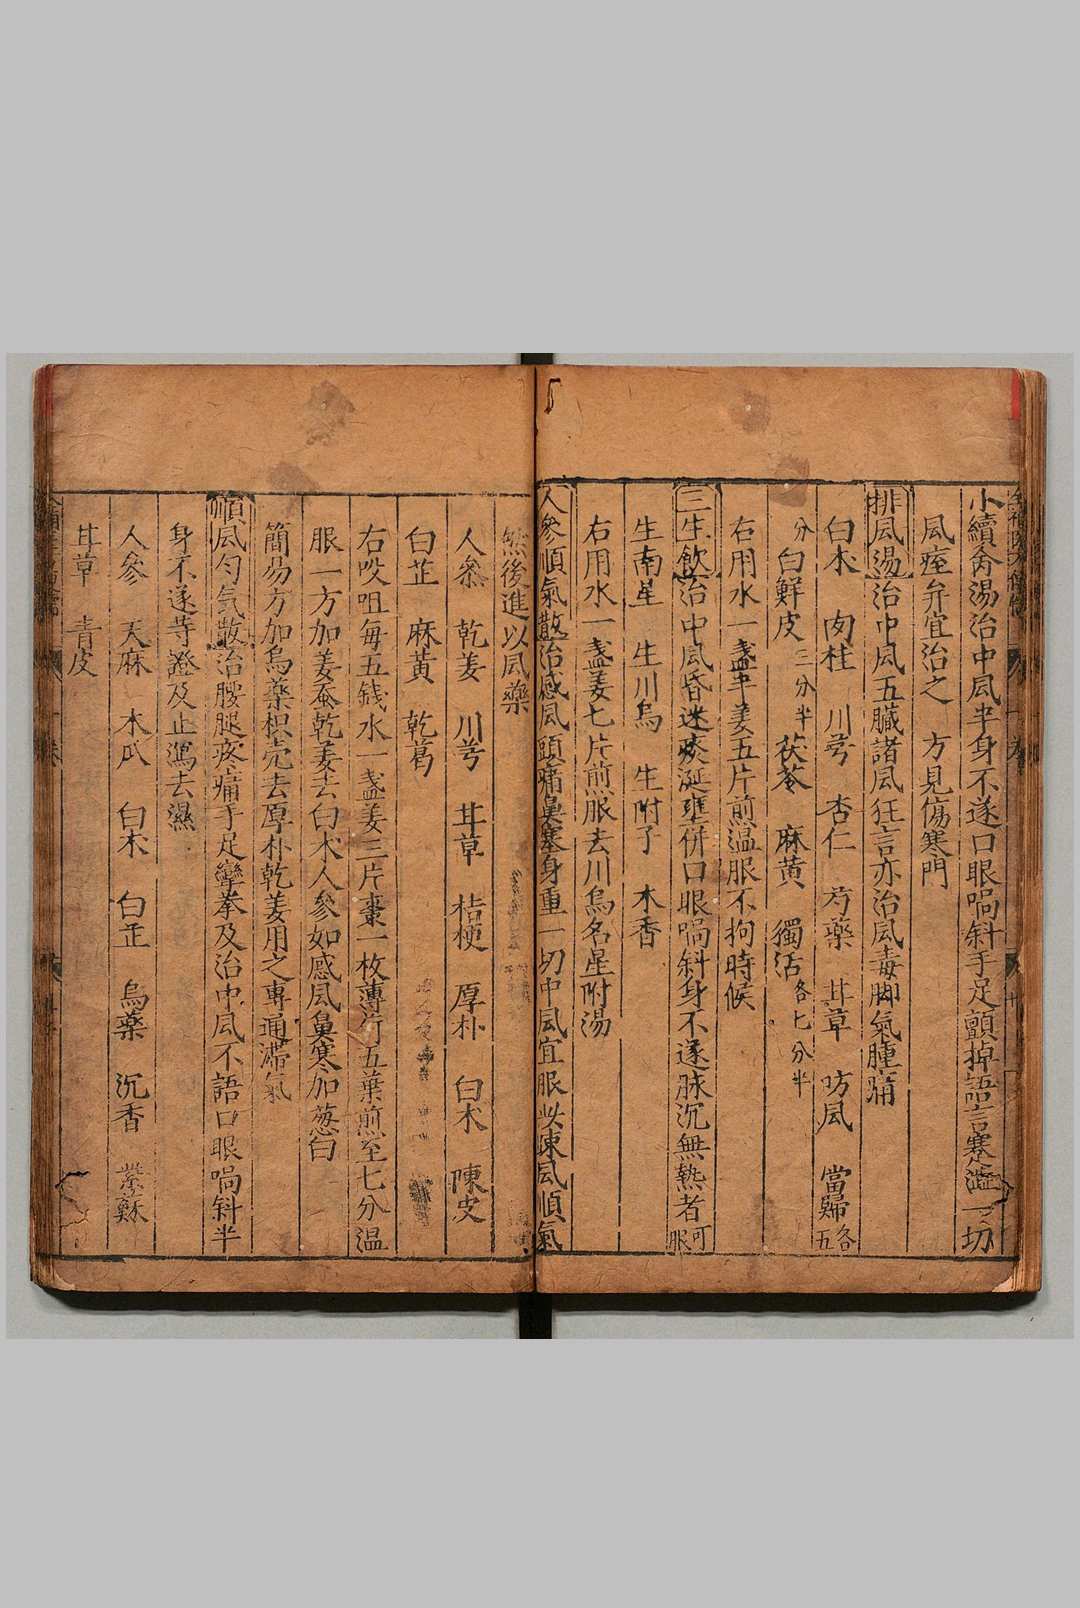 小續命湯治中風半身不遂口眼喎斜手足顫掉語言蹇澁一切
風痓并宜治之 方見傷寒門
排風湯治中風五臟諸風狂言亦治風毒脚氣腫痛
白朮 肉桂 川芎 杏仁 芍藥 甘草 防風 當歸各五
分 白鮮皮三分半 茯苓 麻黃 獨活各七分半
右用水一盞半姜五片煎溫服不拘時候
三生飲治中風昏迷痰涎壅併口眼喎斜身不遂脉沉無熱者可服
生南星 生川烏 生附子 木香
右用水一盞姜七片煎服去川烏名星附湯
人參順氣散治感風頭痛鼻塞身重一切中風宜服以東風順氣
然後進以風藥
人參 乾姜 川芎 甘草 桔梗 厚朴 白朮 陳皮
白芷 麻黃 乾葛
右㕮咀每五錢水一盞姜三片棗一枚薄荷五葉煎至七分溫
服一方加姜蚕乾姜去白朮人參如感風鼻寒加葱白
簡易方加烏藥枳壳去厚朴乾姜用之專通滯氣
順風勻氣散治腰腿疼痛手足攣拳及治中風不語口眼喎斜半
身不遂等證及止瀉去濕
人參 天麻 木瓜 白朮 白芷 烏藥 沉香 紫蘇
甘草 青皮